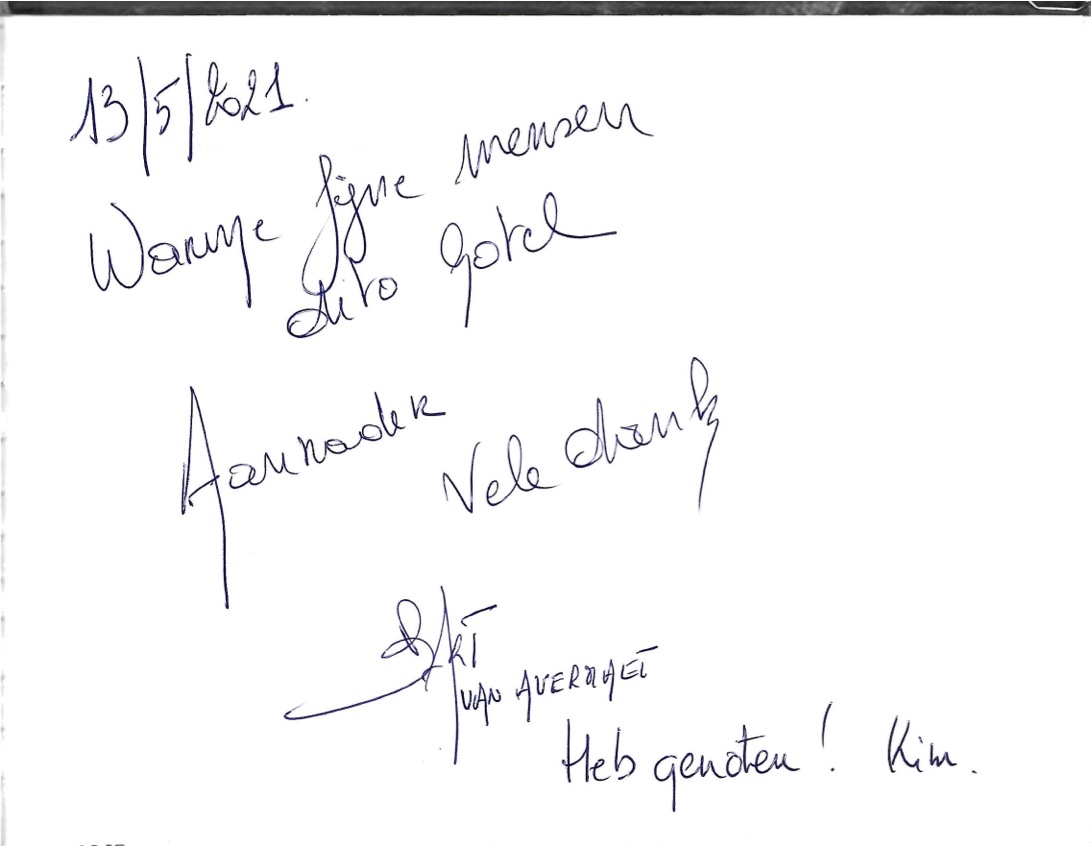 13/5/2021.
Warme fijne mensen
dito Hotel
Aanrader
Vele dank
Bart
VAN AVERMAET
Heb genoten! Kim.